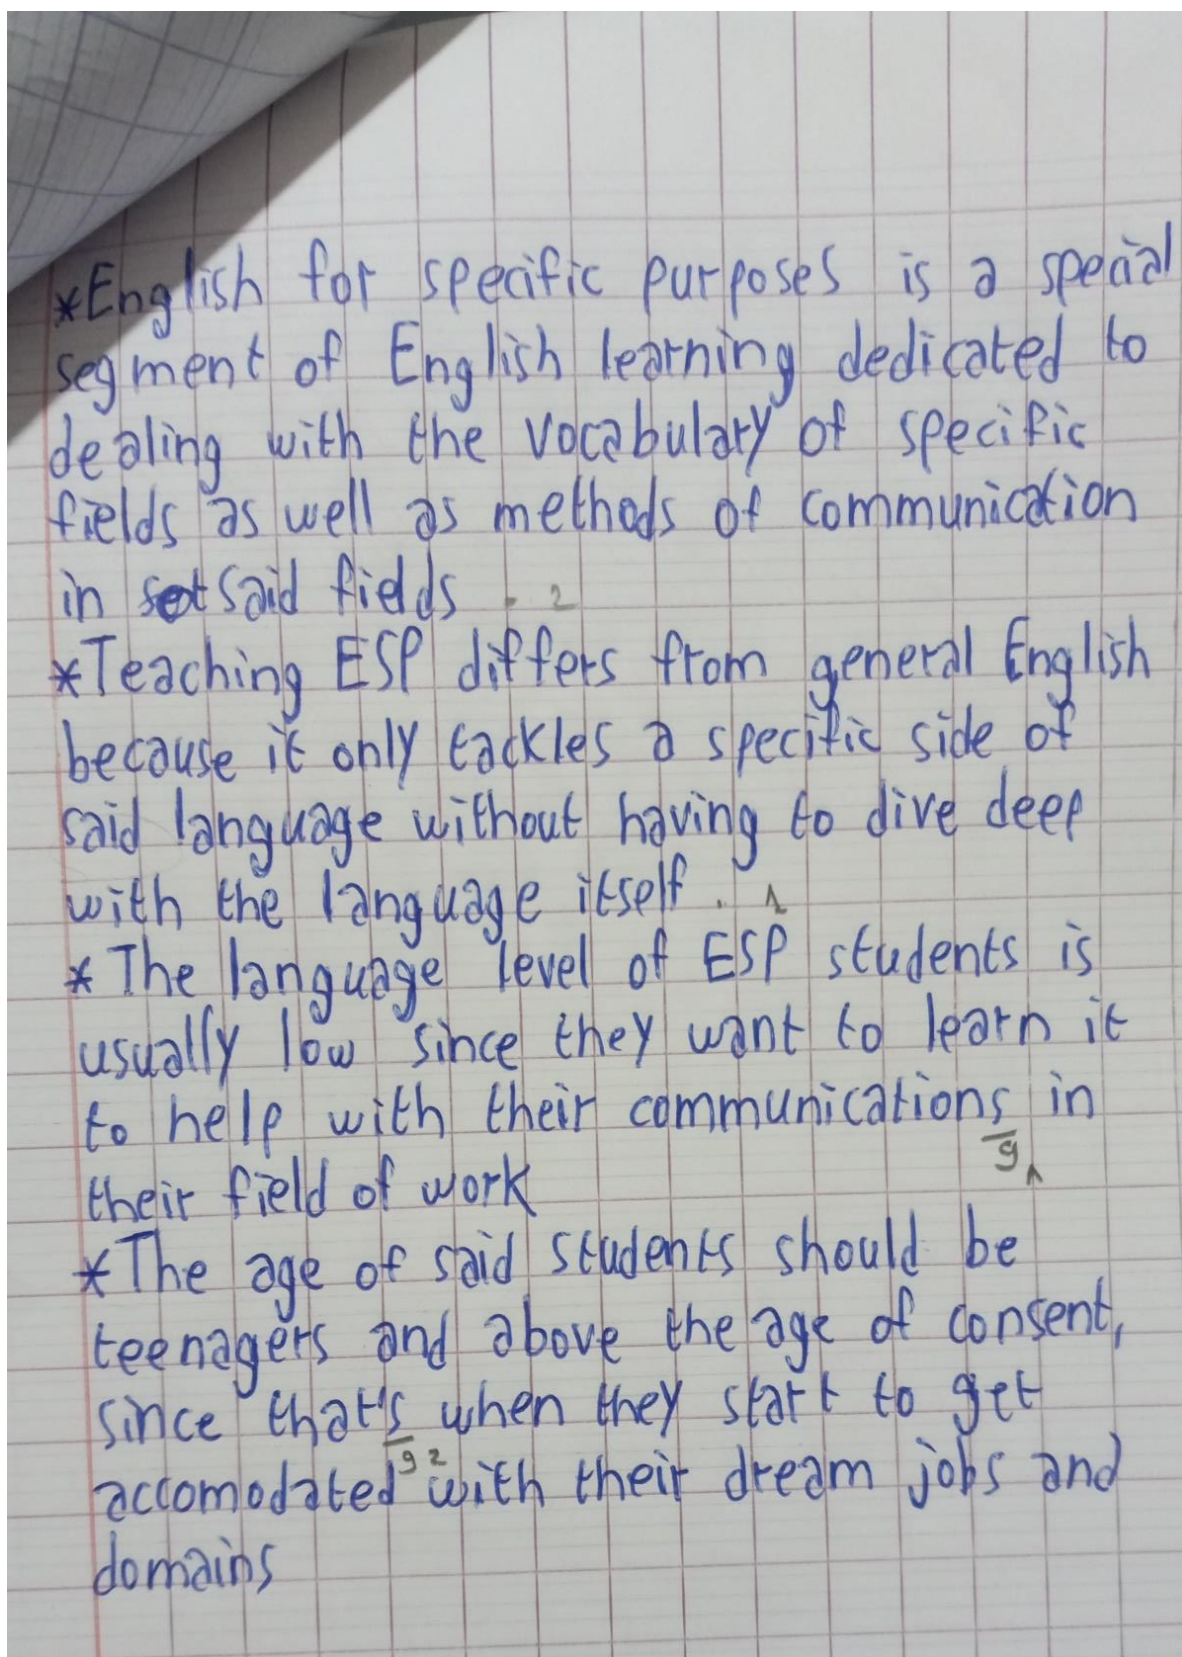 *English for specific purposes is a special
segment of English learning dedicated to
dealing with the vocabulary of specific
fields as well as methods of communication
in said fields . 2
*Teaching ESP differs from general English
because it only tackles a specific side of
said language without having to dive deep
with the language itself . 1
* The language level of ESP students is
usually low since they want to learn it
to help with their communications in
g 1
their field of work
*The age of said students should be
teenagers and above the age of consent,
since that's when they start to get
g 2
accomodated with their dream jobs and
domains